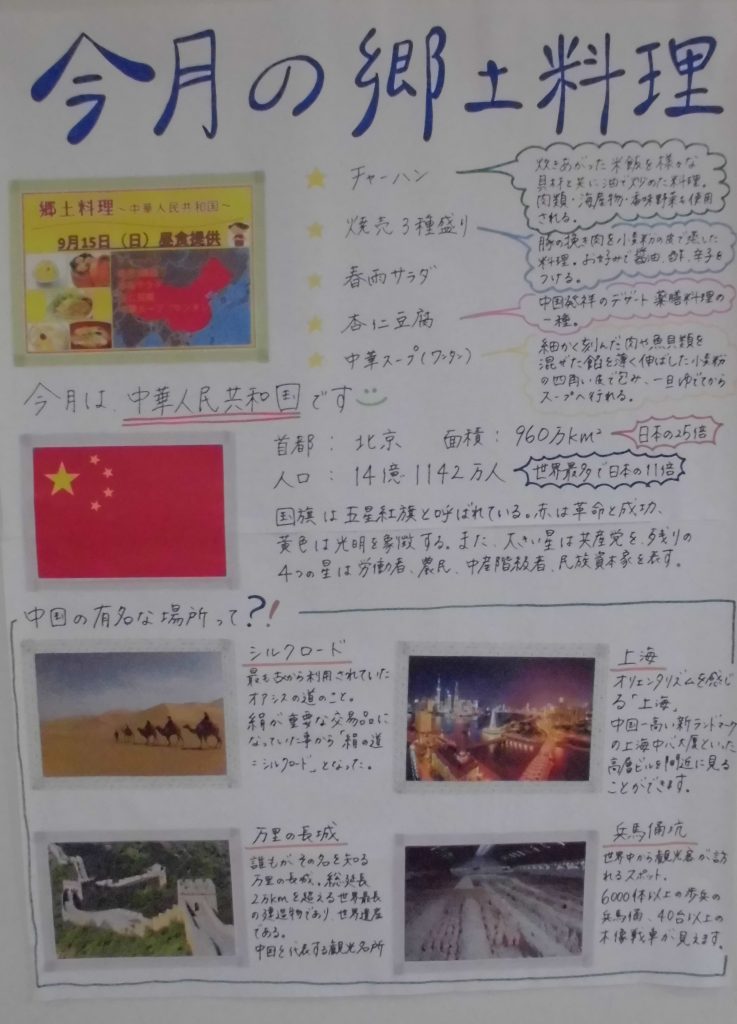 今月の郷土料理
郷土料理～中華人民共和国～
9月15日（日）昼食提供
チャーハン
炊きあがった米飯を様々な
具材と共に油で炒めた料理。
肉類・海産物・香味野菜も使用
される。
焼売3種盛り
豚の挽き肉を小麦粉の皮で蒸した
料理。お好みで醤油、酢、辛子を
つける。
春雨サラダ
杏仁豆腐
中国発祥のデザート 薬膳料理の
一種。
中華スープ(ワンタン)
細かく刻んだ肉や魚貝類を
混ぜた餡を薄く伸ばした小麦粉
の四角い皮で包み、一旦ゆでてから
スープへ行れる。
今月は、中華人民共和国です
首都：北京 面積：960万km² 日本の25倍
人口：14億1142万人 世界最多で日本の11倍
国旗は五星紅旗と呼ばれている。赤は革命と成功、
黄色は光明を象徴する。また、大きい星は共産党を、残りの
4つの星は労働者、農民、中産階級者、民族資本家を表す。
中国の有名な場所って?!
シルクロード
最も古から利用されていた
オアシスの道のこと。
絹が重要な交易品に
なっていた事から「絹の道
=シルクロード」となった。
上海
オリエンタリズムを感じ
る「上海」
中国一高い新ランドマーク
の上海中心大厦といった
高層ビルを間近に見る
ことができます。
万里の長城
誰もがその名を知る
万里の長城。総延長
2万kmを超える世界最長
の建造物であり、世界遺産
である。
中国を代表する観光名所
兵馬俑坑
世界中から観光客が訪
れるスポット。
6000体以上の歩兵の
兵馬俑、40台以上の
木像戦車が見えます。